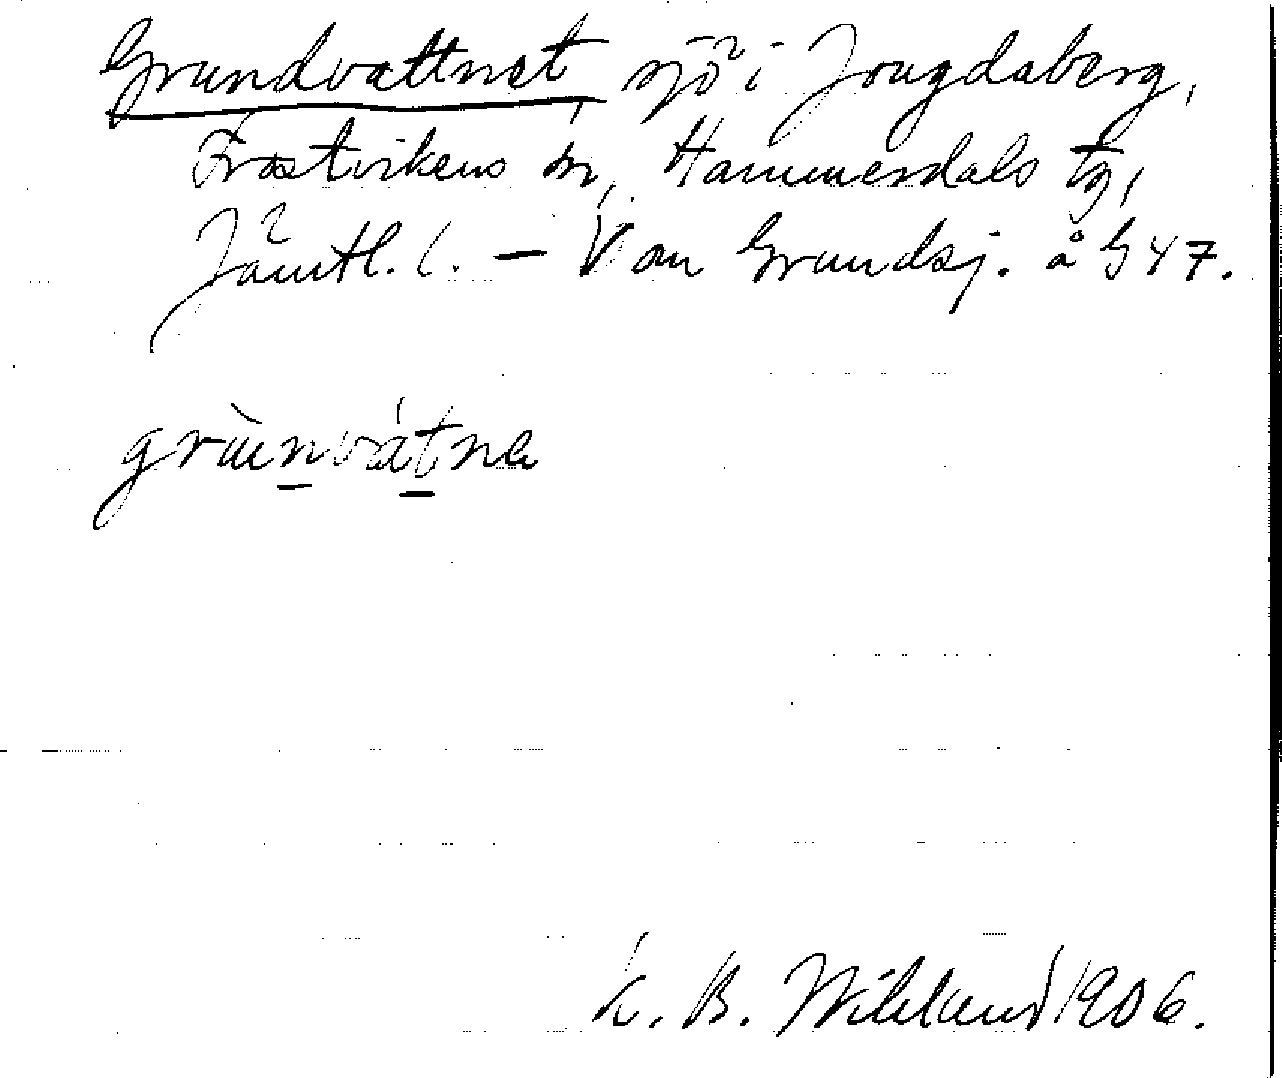 Grundvattnet, sjö i Jougdaberg,
Frostvikens sn, Hammerdals tg,
Jämtl. l. — Van Grundsj. å G 47.
grùnvátnə
K. B. Wiklund 1906.